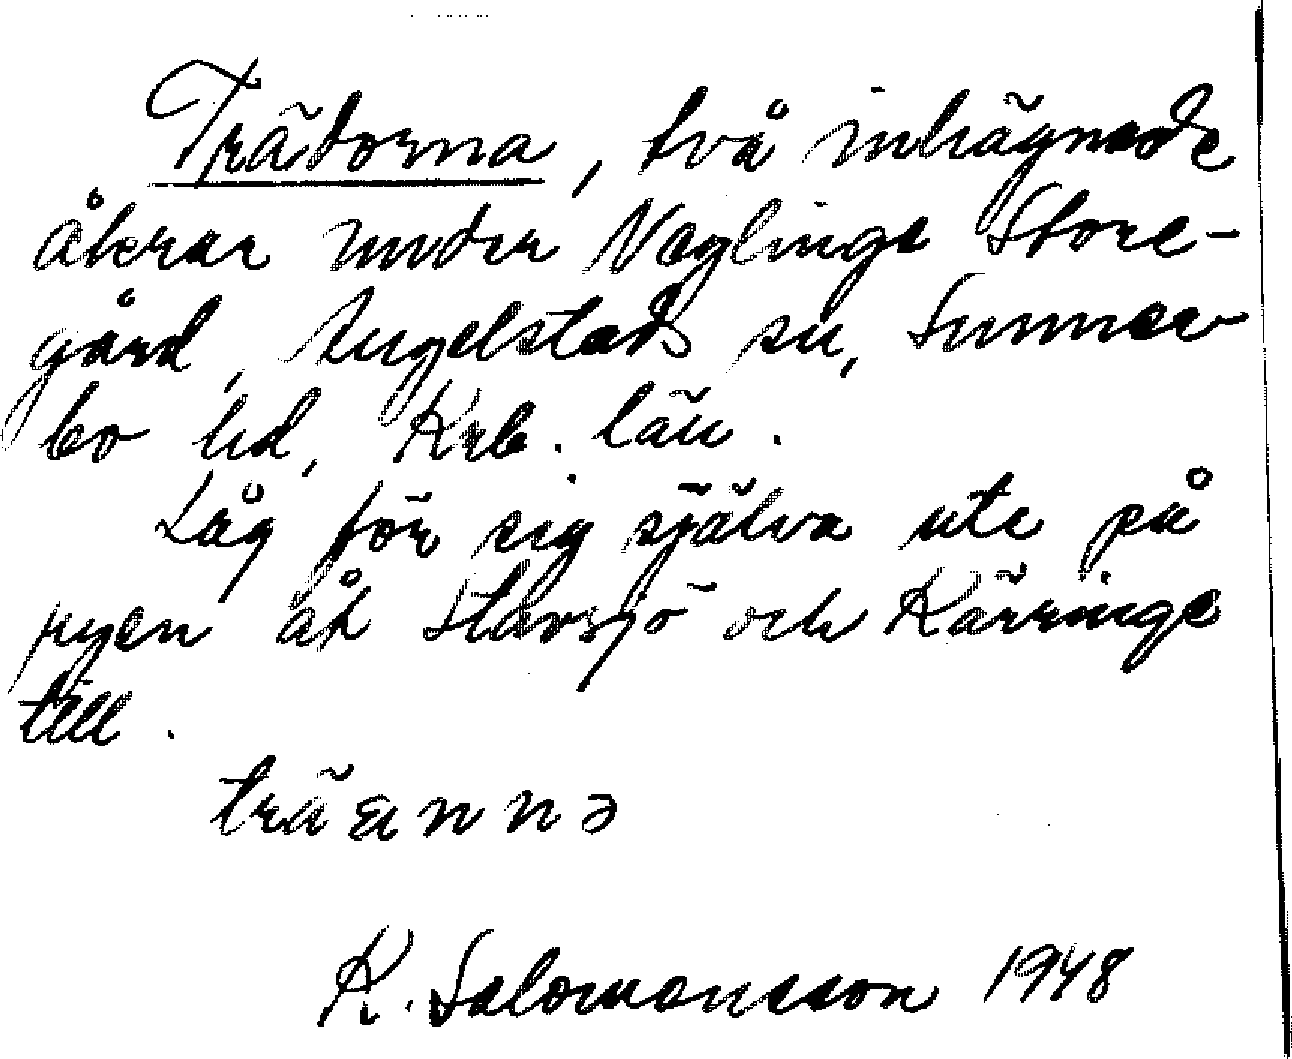 Trädorna, två inhägnade
åkrar under Naglinge Store-
gård, Angelstads sn, Sunner
bo hd, Krb. län.
Låg för sig själva ute på
ryen åt Stavsjö och Käringe
till.
träannə
K. Salomonsson 1948